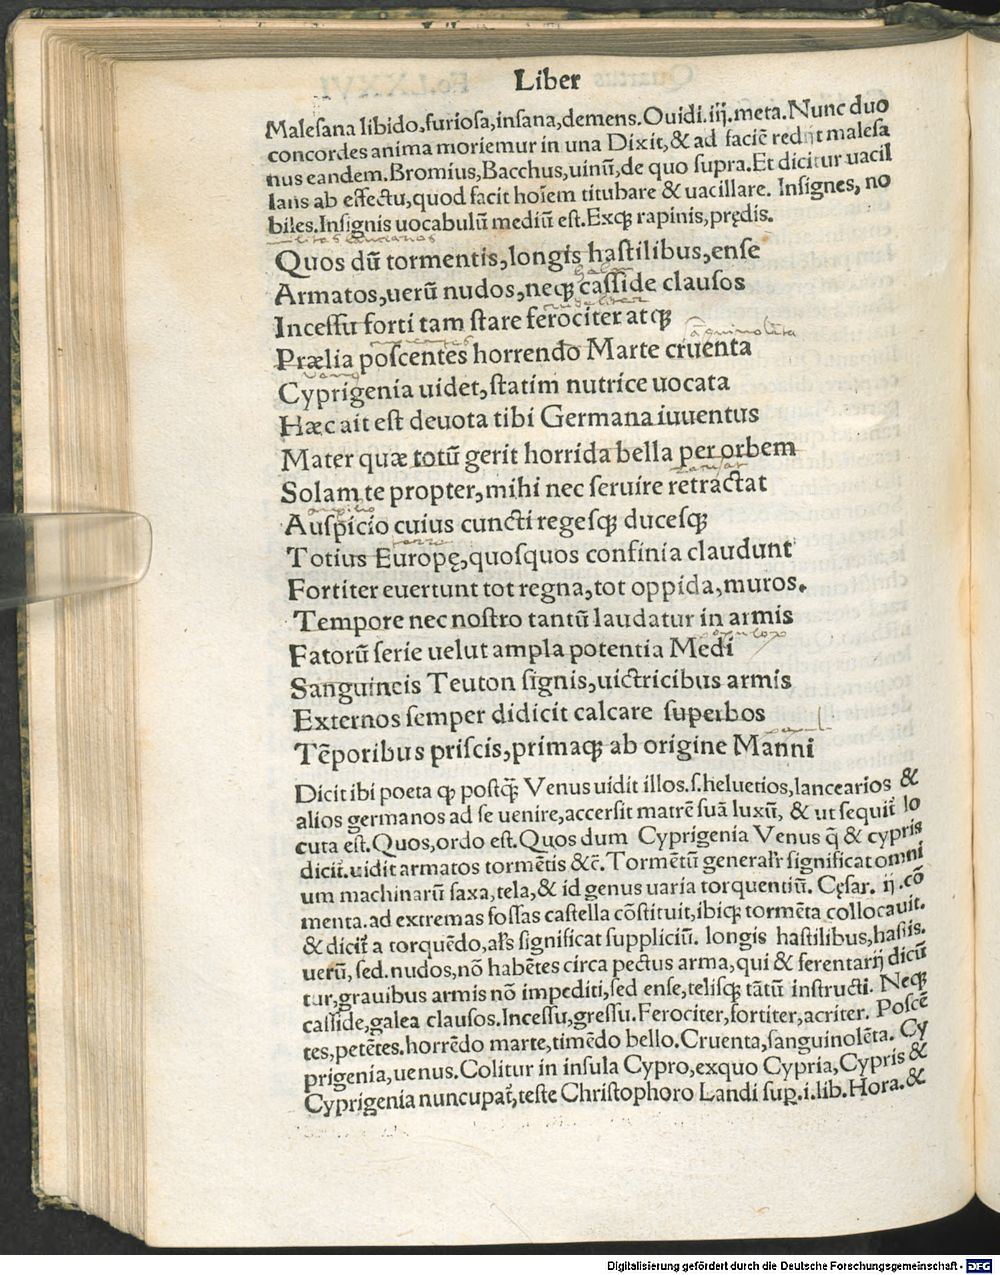 Liber
Malesana libido, furiosa, insana, demens. Ouidi. iij. meta. Nunc duo
concordes anima moriemur in una Dixit, & ad faciē redijt malesa
nus eandem. Bromius, Bacchus, uinū, de quo supra. Et dicitur uacil
lans ab effectu, quod facit hoīem titubare & uacillare. Insignes, no
biles. Insignis uocabulū mediū est. Exqꝫ rapinis, prędis.
Quos dū tormentis, longis hastilibus, ense
Armatos, uerū nudos, neqꝫ casside clausos
crudeliter
Incessu forti tam stare ferociter atqꝫ
Prælia poscentes horrendo Marte cruenta
Cyprigenia uidet, statim nutrice uocata
Hæc ait est deuota tibi Germana iuuentus
Mater quæ totū gerit horrida bella per orbem
Solam te propter, mihi nec seruire retractat
auxilio
Auspicio cuius cuncti regesqꝫ ducesqꝫ
Totius Europę, quosquos confinia claudunt
Fortiter euertunt tot regna, tot oppida, muros.
Tempore nec nostro tantū laudatur in armis
Fatorū serie uelut ampla potentia Medi
Sanguineis Teuton signis, uictricibus armis
Externos semper didicit calcare superbos
Tēporibus priscis, primaqꝫ ab origine Manni
Dicit ibi poeta qꝫ postqꝫ̄ Venus uidit illos. s. heluetios, lancearios &
alios germanos ad se uenire, accersit matrē suā luxū, & ut sequit̄ lo
cuta est. Quos, ordo est. Quos dum Cyprigenia Venus q̄ & cypris
dicit̄. uidit armatos tormētis &c̄. Tormētū generalr̄ significat omni
um machinarū saxa, tela, & id genus uaria torquentiū. Cęsar. ij. cō
menta. ad extremas fossas castella cōstituit, ibiqꝫ tormēta collocauit.
& dicit̄ a torquēdo, al̄s significat suppliciū. longis hastilibus, hastis.
uerū, sed. nudos, nō habētes circa pectus arma, qui & ferentarij dicū
tur, grauibus armis nō impediti, sed ense, telisqꝫ tātū instructi. Neqꝫ
casside, galea clausos. Incessu, gressu. Ferociter, fortiter, acriter. Poscē
tes, petētes. horrēdo marte, timēdo bello. Cruenta, sanguinolēta. Cy
prigenia, uenus. Colitur in insula Cypro, exquo Cypria, Cypris &
Cyprigenia nuncupat̄, teste Christophoro Landi sup̱. i. lib. Hora. &
Digitalisierung gefördert durch die Deutsche Forschungsgemeinschaft - DFG